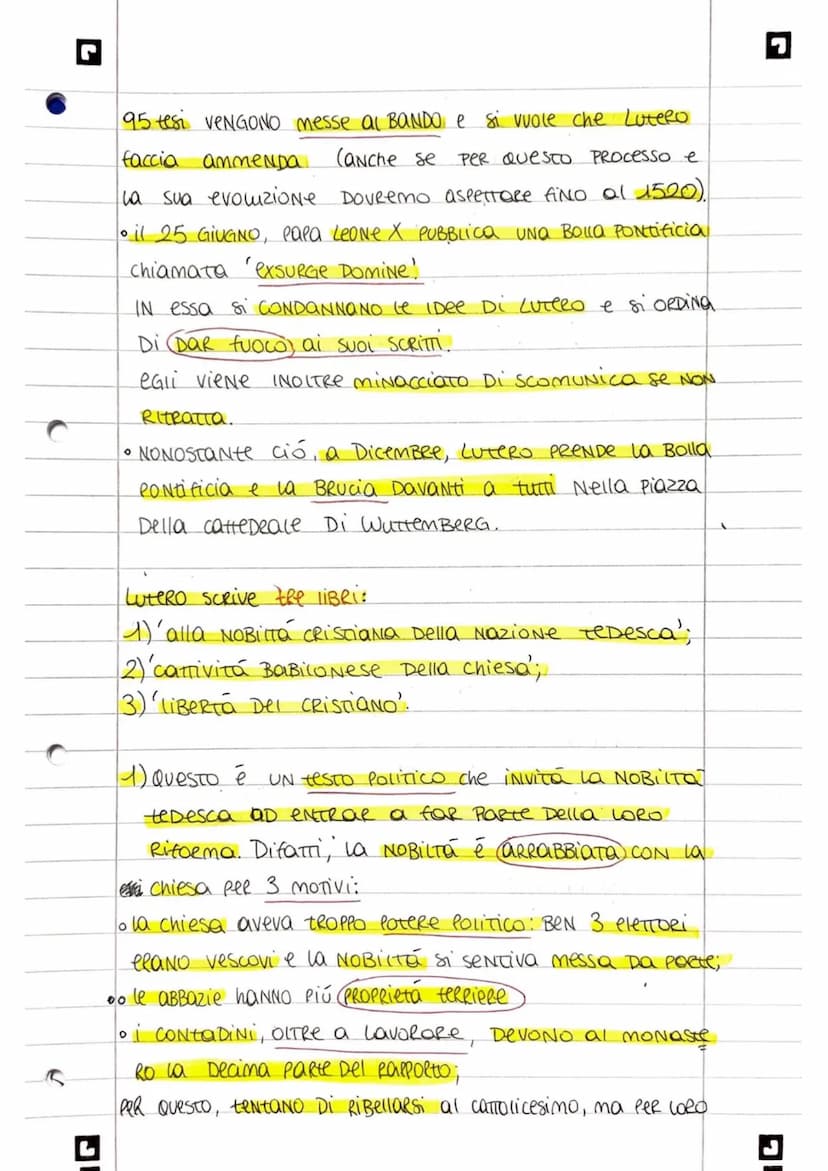 95 tesi VENGONO messe al BANDO e si vuole che Lutero
faccia ammenda (anche se per questo processo e
la sua evoluzione dovremo aspettare fino al 1520).
• il 25 GIUGNO, papa Leone X pubblica una Bolla Pontificia
chiamata 'EXSURGE DOMINE'.
IN essa si condannano le idee di Lutero e si ordina
di dar fuoco ai suoi scritti.
egli viene inoltre minacciato di scomunica se non
ritratta.
• Nonostante ció, a Dicembre, Lutero prende la Bolla
Pontificia e la brucia davanti a tutti nella piazza
della cattedrale di Wuttemberg.
Lutero scrive tre libri:
1) 'alla nobiltá cristiana della nazione tedesca';
2) 'cattivitá Babilonese della chiesa';
3) 'libertá del cristiano'.
1) Questo é un testo politico che invita la nobiltá
tedesca ad entrar a far parte della loro
Riforma. Difatti, la nobiltá é arrabbiata con la
chiesa per 3 motivi:
• la chiesa aveva troppo potere politico: ben 3 elettori
erano vescovi e la nobiltá si sentiva messa da parte;
• le abbazie hanno piú proprietá terriere
• i contadini, oltre a lavorare, devono al monaste
ro la decima parte del rapporto;
per questo, tentano di ribellarsi al cattolicesimo, ma per loro